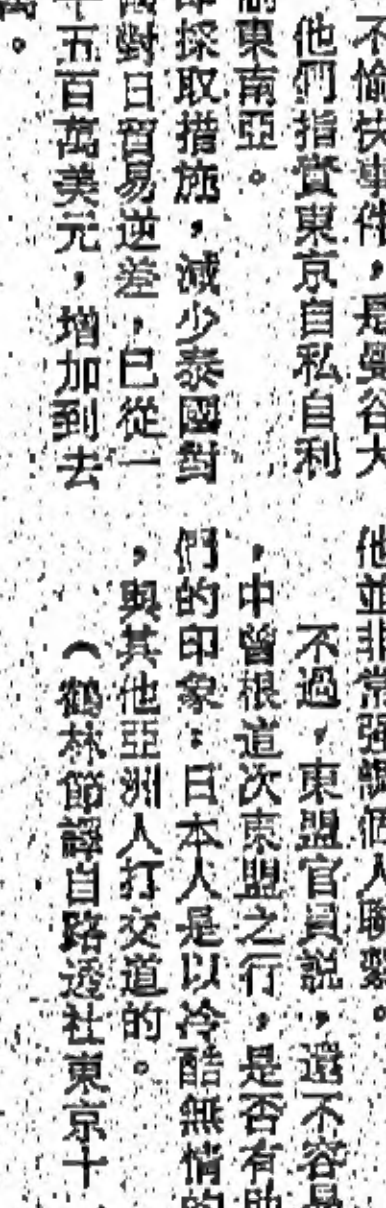 不愉快事件，是曼谷大
他們指責東京自私自利
東南亞。
採取措施，減少泰國對
對日貿易逆差，已從一
五百萬美元，增加到去
。
他並非常強調個人聯繫。
不過，東盟官員說，還不容易
，中曾根這次東盟之行，是否有助
們的印象：日本人是以冷酷無情的
，與其他亞洲人打交道的。
（鶴林節譯自路透社東京十